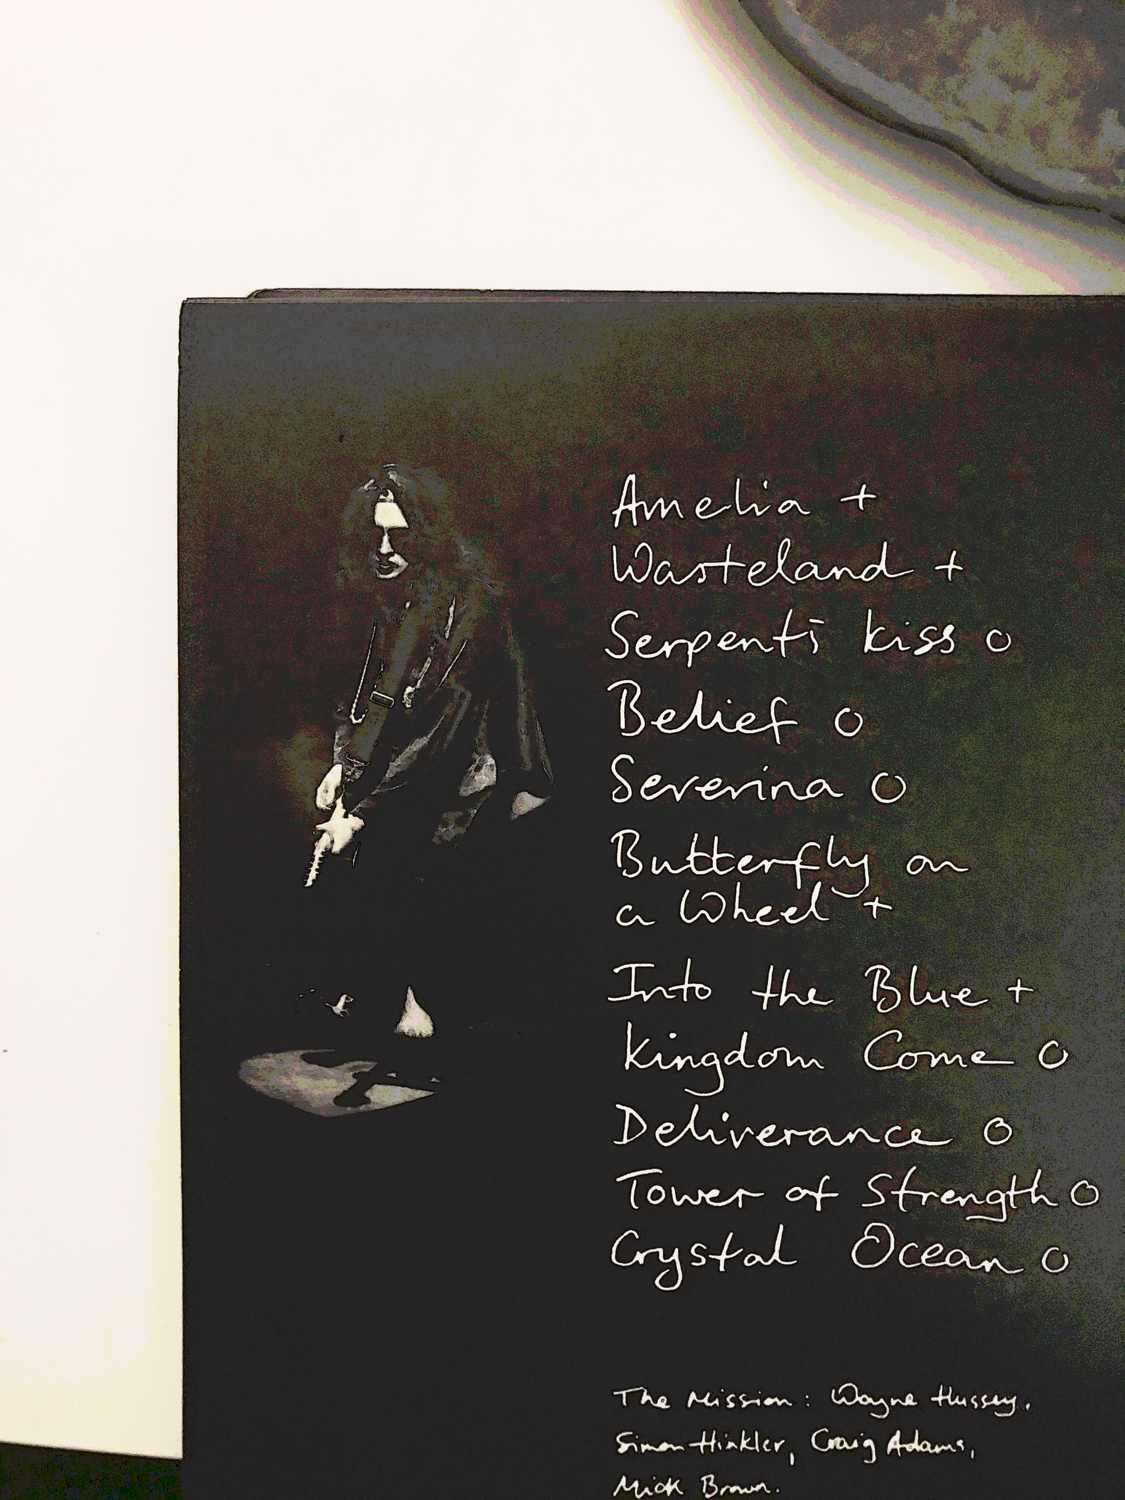 Amelia +
Wasteland +
Serpents kiss o
Belief o
Severina o
Butterfly on
a Wheel +
Into the Blue +
Kingdom Come o
Deliverance o
Tower of Strength o
Crystal Ocean o
The Mission: Wayne Hussey,
Simon Hinkler, Craig Adams,
Mick Brown.